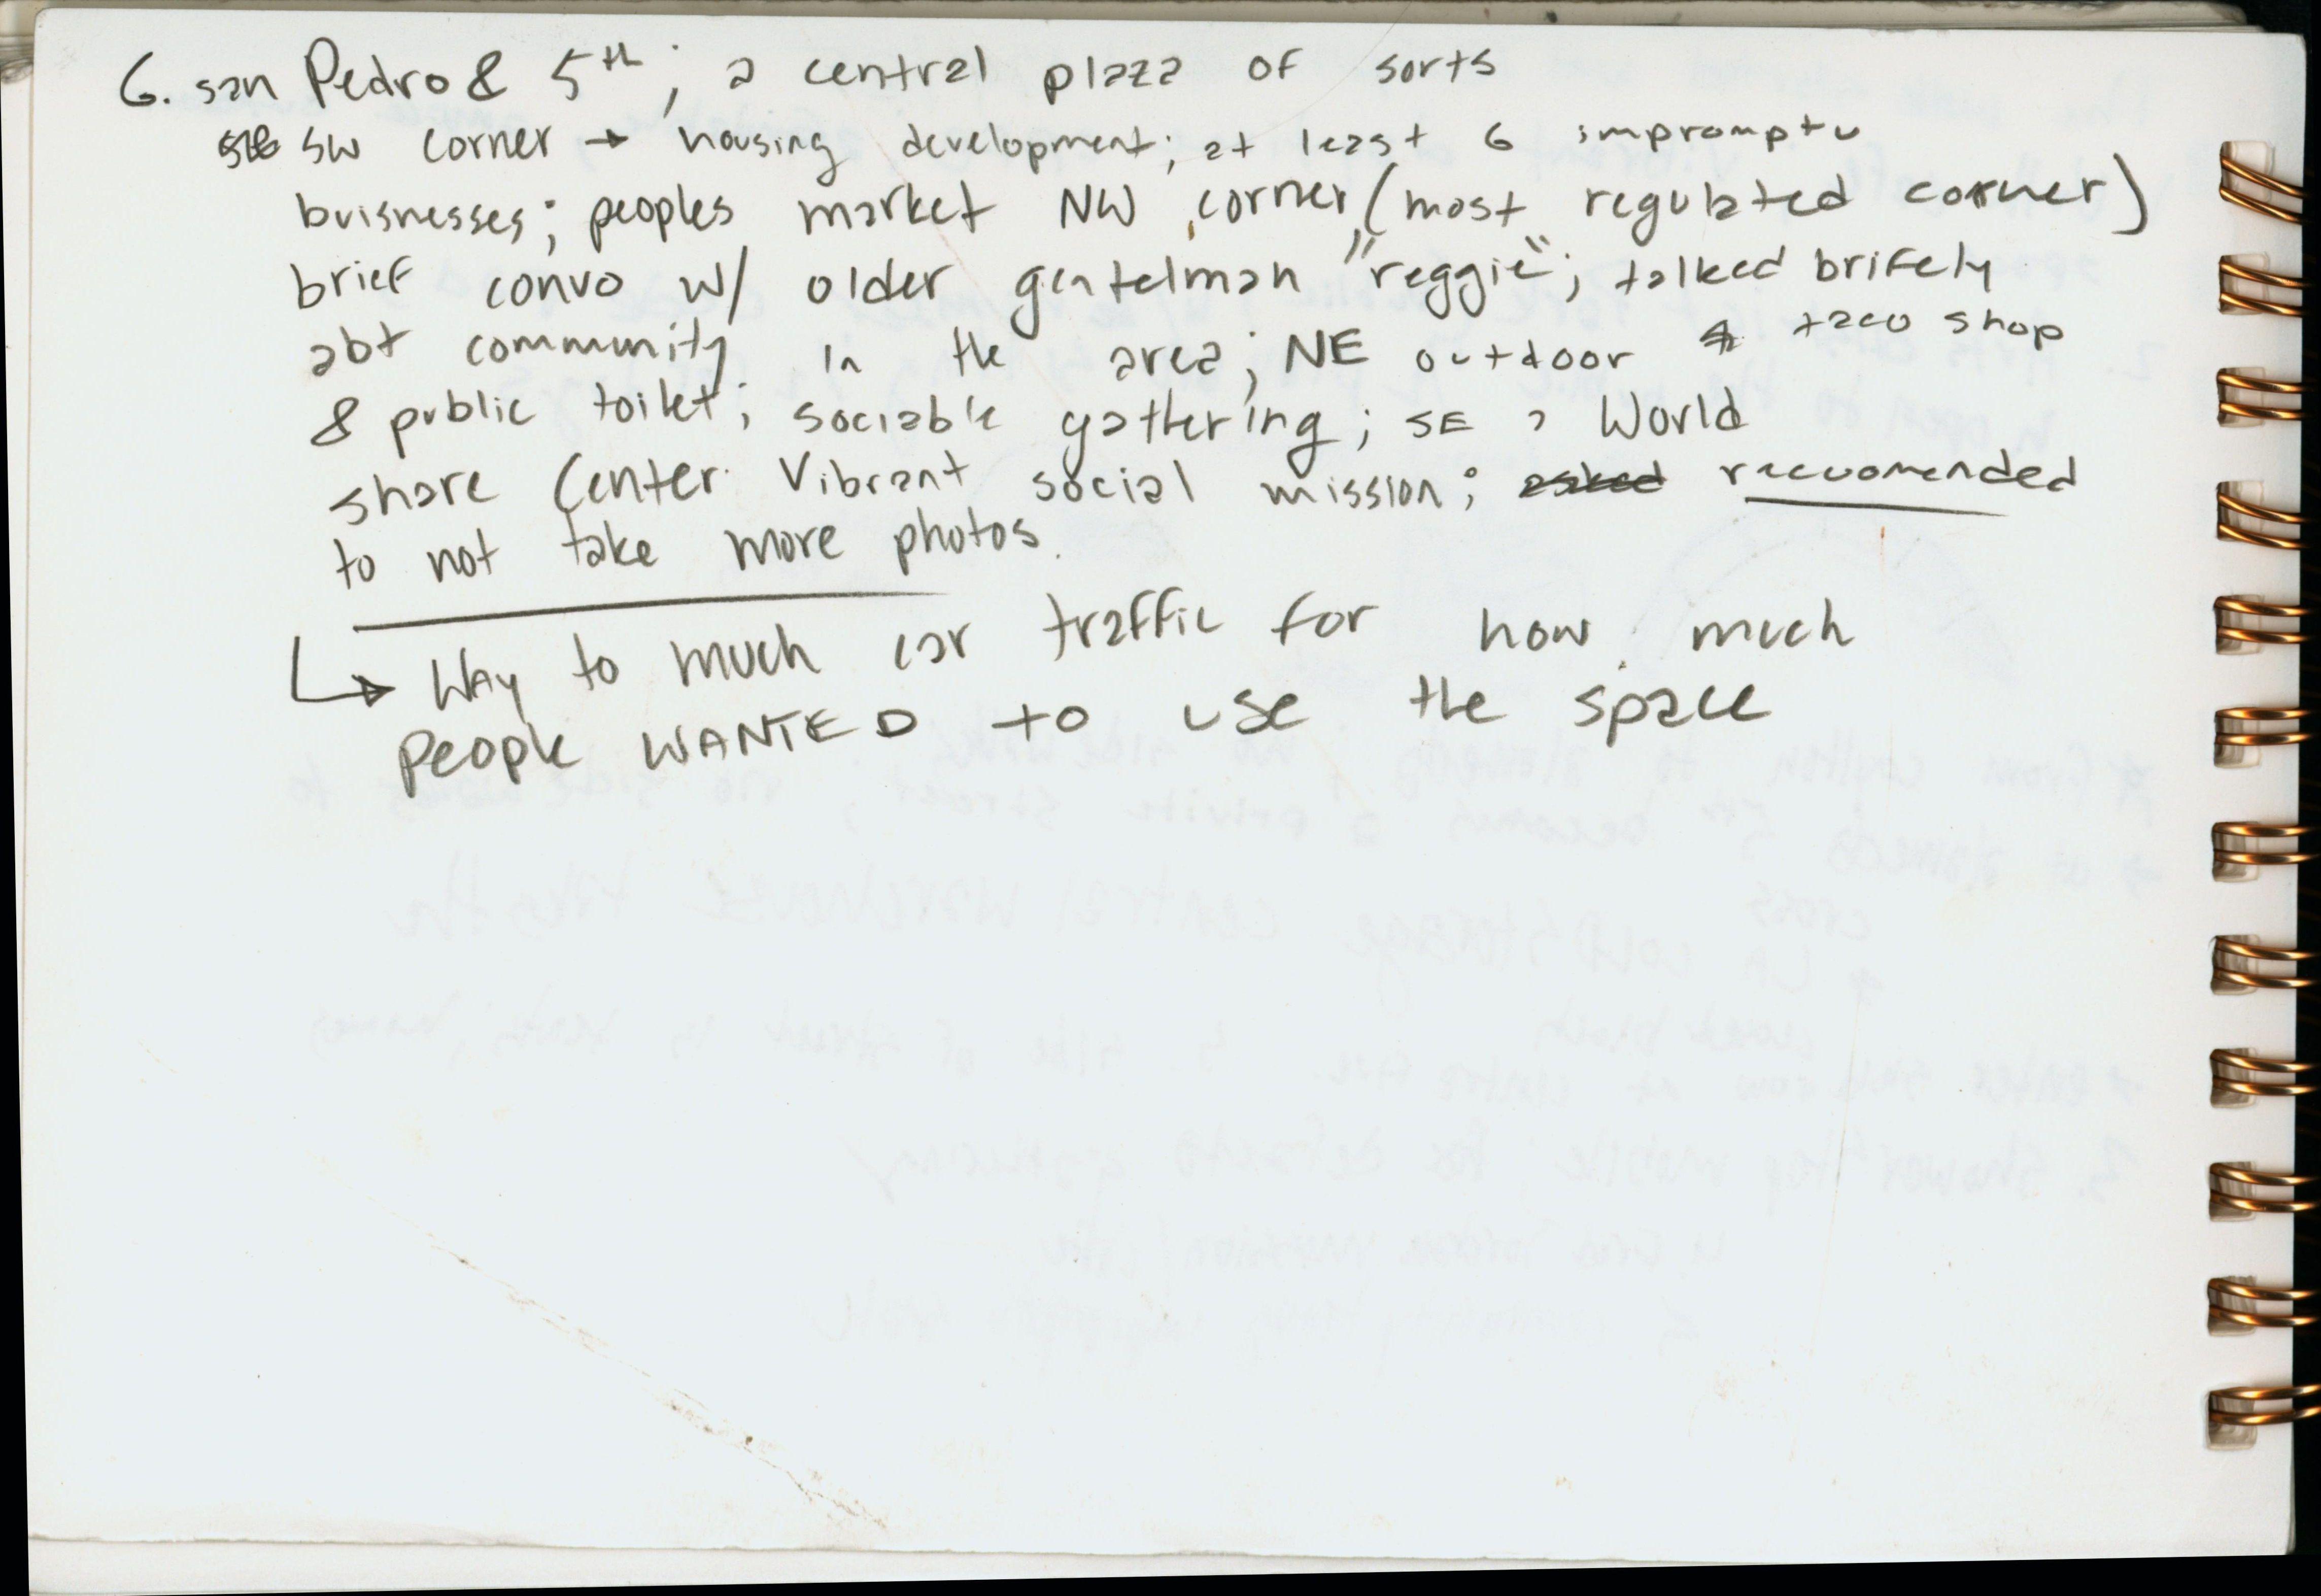 6. san Pedro & 5th; a central plaza of sorts
SW corner → housing development; at least 6 impromptu
buisnesses; peoples market NW corner (most regulated corner)
brief convo w/ older gentelman "reggie"; talked brifely
abt community in the area; NE outdoor taco shop
& public toilet; sociable gathering; SE a World
share Center. Vibrant social mission; asked reccomended
to not take more photos.
↳ Way to much car traffic for how much
people WANTED to use the space